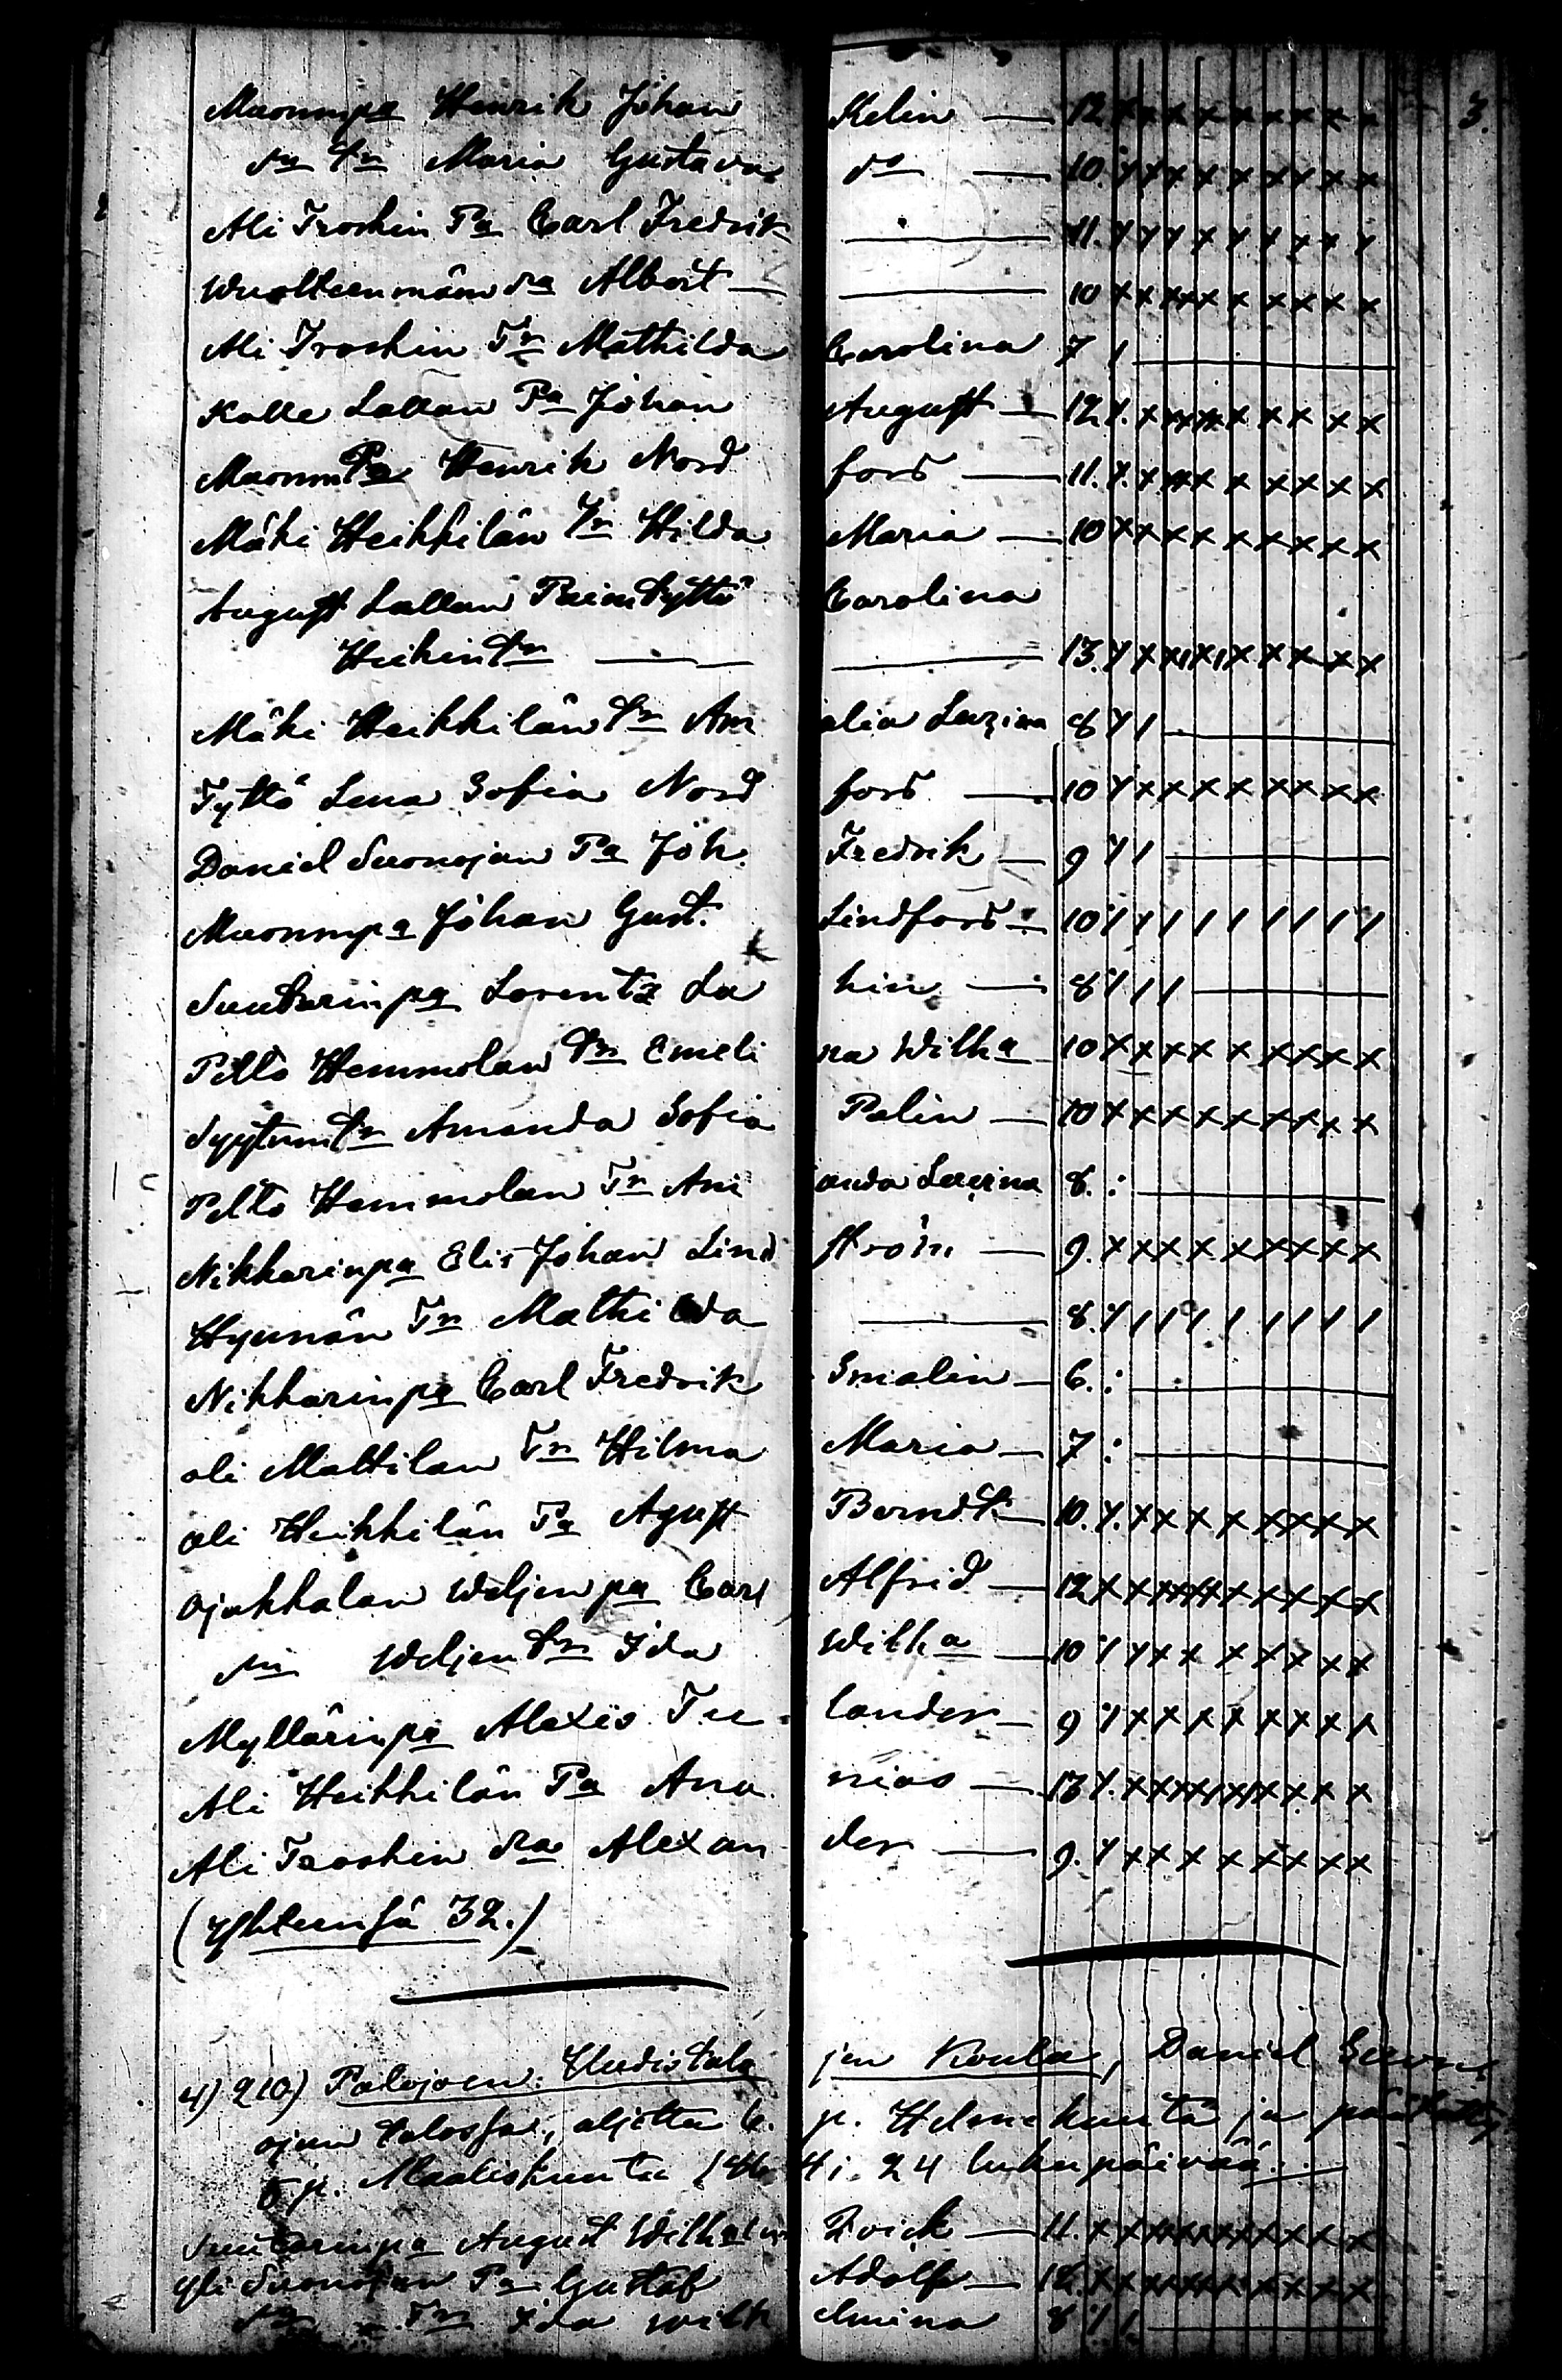 3.
Muonmpa Henrik Johan Kelin — 12 x x x x x x x x x x
dn tr Maria Gustava do — 10. x x x x x x x x x x
Ali Troskin Pa Carl Fredrik — 11. x x x x x x x x x
Wuolteenmäen Pa Albert — 10 x x x x x x x x x x
Ali Troskin Tr Mathilda Carolina 7 / —
Kalle Lallan Pa Johan August — 12 x x x x x x x x x x
Muonm Pa Henrik Nordfors — 11. x x x x x x x x x x
Mäki Heikkilän Tr Hilda Maria — 10 x x x x x x x x x x
August Lallan Tyttö Carolina
Heikin tr — 13. x x x x x x x x x x
Mäki Heikkilän tr Amalia 8 x / —
Tyttö Lena Sofia Nordfors — 10 x x x x x x x x x x
Daniel Suonojan Pa Joh. Fredrik — 9 x / —
Muonmpa Johan Gust. Lindfors — 10 x / / / / / / / / /
Suutarinpa Lorentz Lahin — 8 x / / —
Pelto Hemmolan tr Emelina Wilha 10 x x x x x x x x x x
Syytum tr Amanda Sofia Palin — 10 x x x x x x x x x x
Pelto Hemmolan Tr Amanda 8. : —
Nikkarinpa Elis Johan Lindström — 9. x x x x x x x x x x
Hynnän Tr Mathilda — 8. x / / / / / / / / /
Nikkarinpa Carl Fredrik Smalin — 6. : —
Ali Mattilan Tr Hilma Maria — 7 : —
Ali Heikkilän Pa Agust Berndt — 10. x x x x x x x x x x
Ojakkalan Weljen pa Carl Alfrid — 12 x x x x x x x x x x
dn Weljen tr Ida Wilha — 10 x x x x x x x x x
Myllärinpa Alexis Tulander — 9 x x x x x x x x x
Ali Heikkilän Pa Ananias — 13 x x x x x x x x x x
Ali Troskin Pa Alexander — 9. x x x x x x x x x
(Yhteensä 32.)
4) 2(0) Palojoen: Uudistalojen Koulu, Daniel
ojan talossa, aljettu 6. p. Helmekuuta ja
5 p. Maaliskuuta 24 lukupäivää.
Suutarinpa August Wilhelm Qvick — 11. x x x x x x x x x x
Yli Suonojan Pa Gustaf Adolf — 12. x x x x x x x x x x
dn Tr Ida Wilhelmina 8 x / —